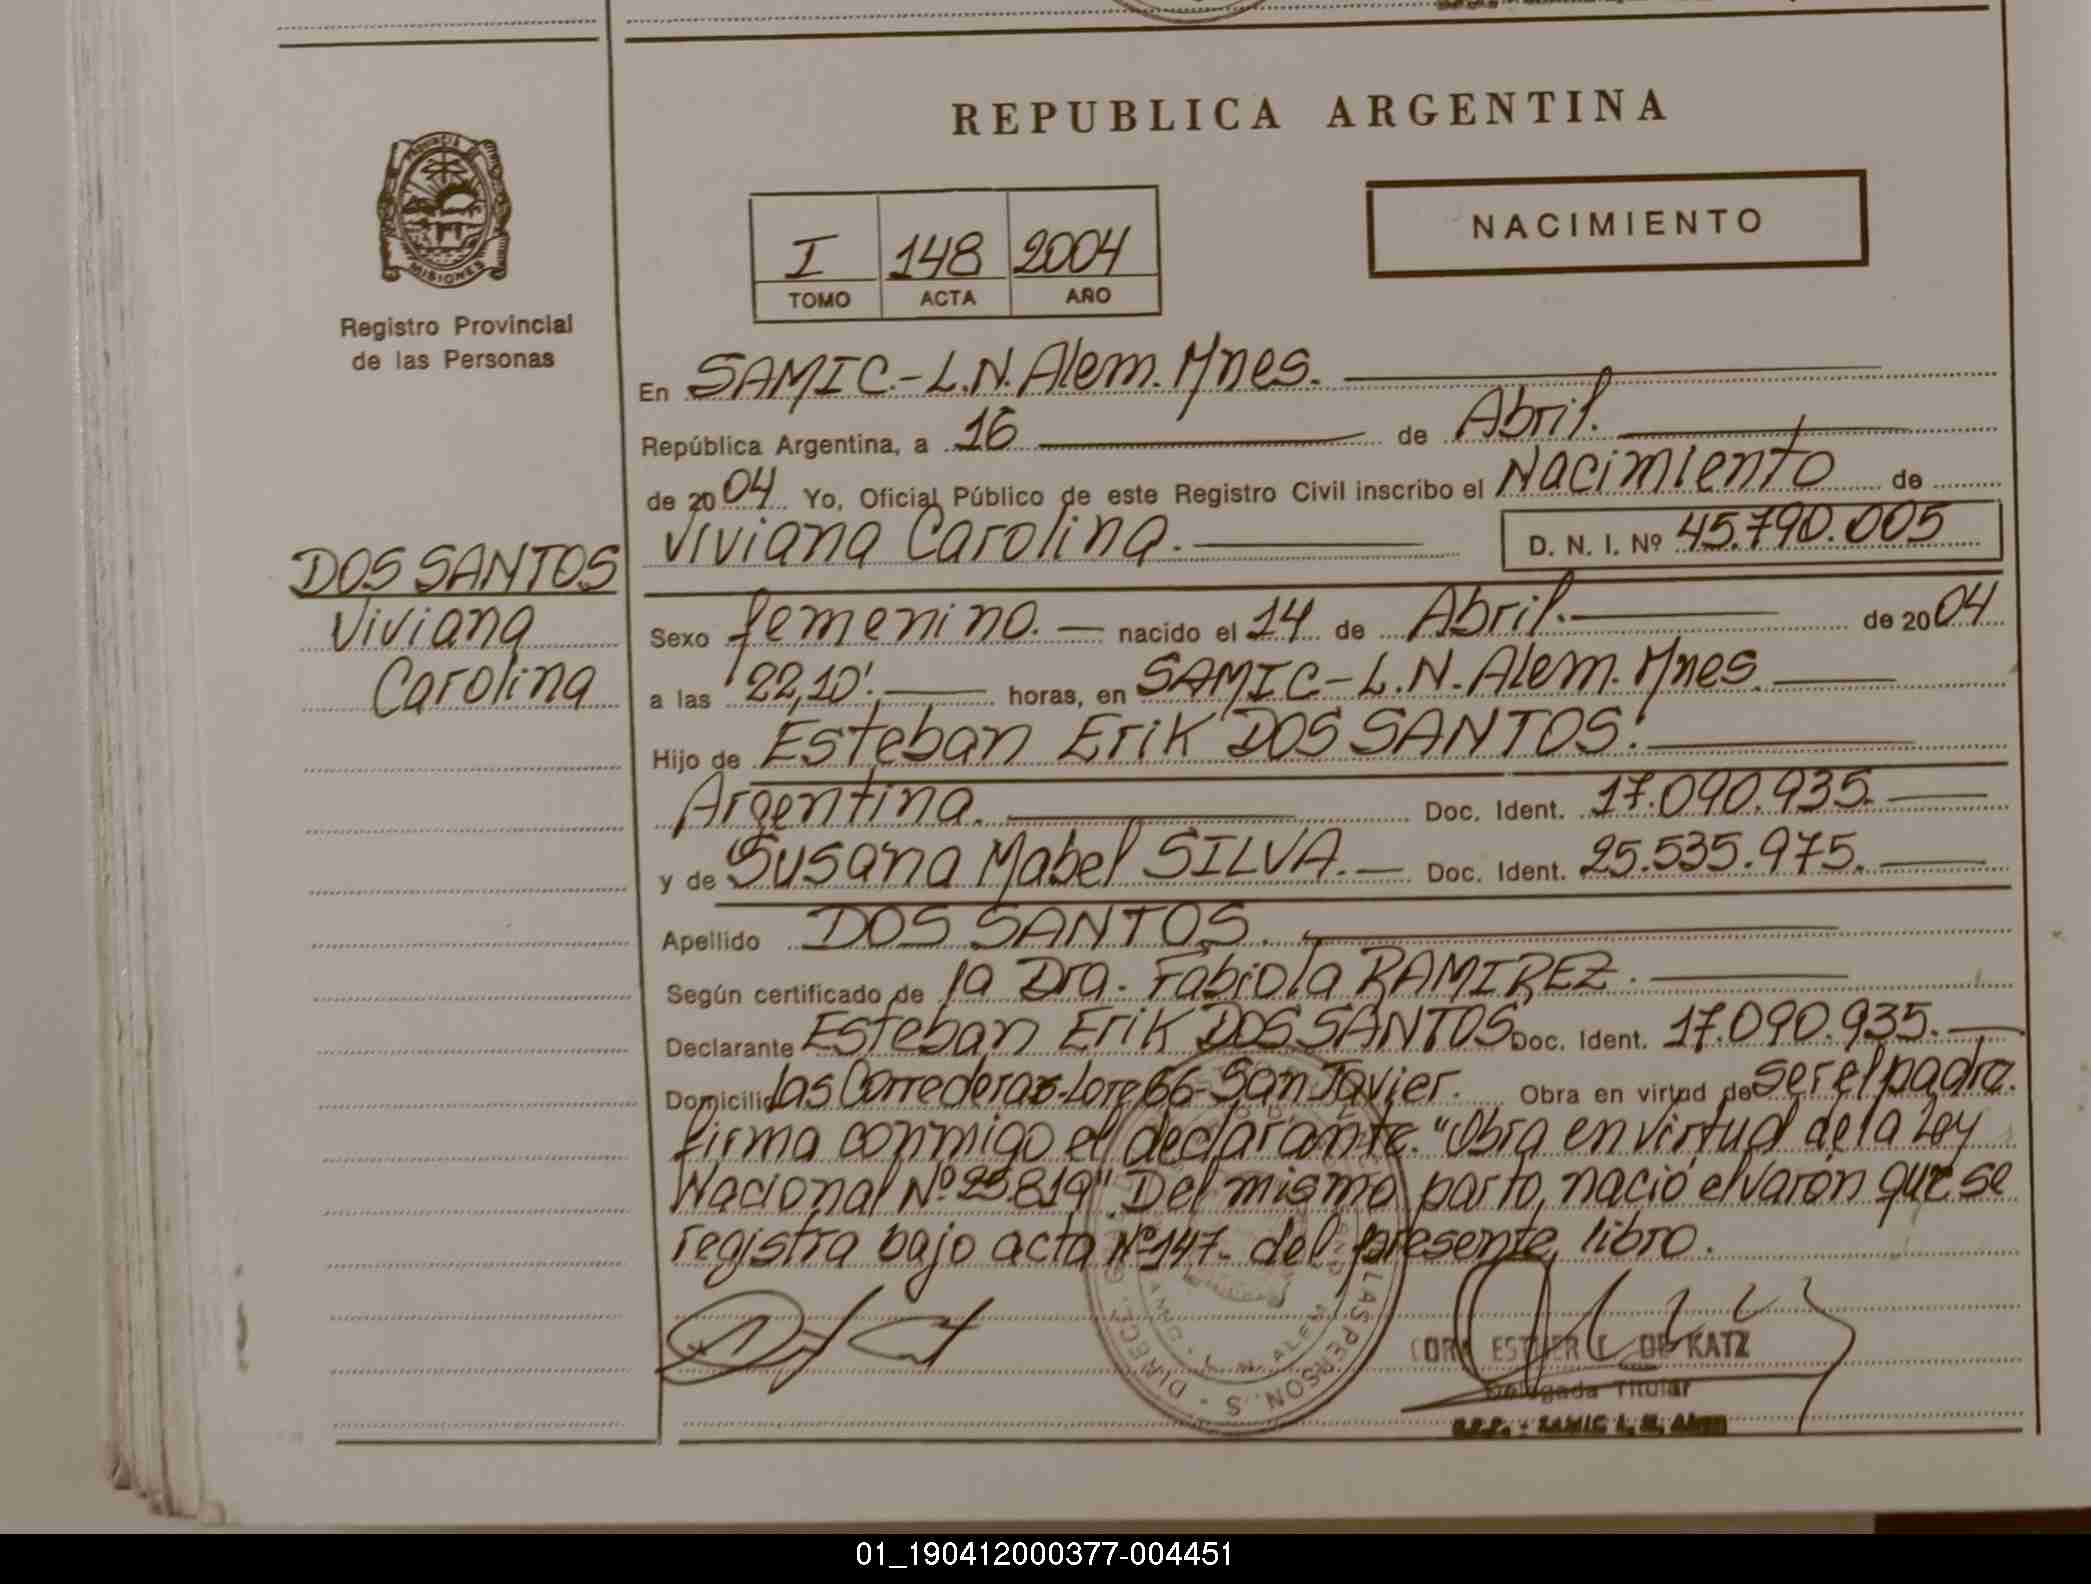 REPUBLICA ARGENTINA
PROVINCIA DE
MISIONES
Registro Provincial
de las Personas
I 148 2004
TOMO ACTA AÑO
NACIMIENTO
En SAMIC.-L.N.Alem.Mnes.
República Argentina, a 16 de Abril.
de 2004 Yo, Oficial Público de este Registro Civil inscribo el Nacimiento de
Viviana Carolina. D. N. I. Nº 45.790.005
DOS SANTOS
Viviana
Carolina
Sexo femenino. nacido el 14 de Abril. de 2004
a las 22,10'. horas, en SAMIC-L.N.Alem.Mnes.
Hijo de Esteban Erik DOS SANTOS.
Argentina. Doc. Ident. 17.090.935.
y de Susana Mabel SILVA. Doc. Ident. 25.535.975.
Apellido DOS SANTOS.
Según certificado de la Dra. Fabiola RAMIREZ.
Declarante Esteban Erik DOS SANTOS Doc. Ident. 17.090.935.
Domicilio Las Correderas-Lote 66-San Javier. Obra en virtud de ser el padre.
firma conmigo el declarante. "Obra en virtud de la Ley
Nacional Nº 25.819" Del mismo parto, nació el varón que se
registra bajo acta Nº 147. del presente libro.
ESTHER DE KATZ
Delegada Titular
R.P.P. - SAMIC L. N. Alem
01_190412000377-004451